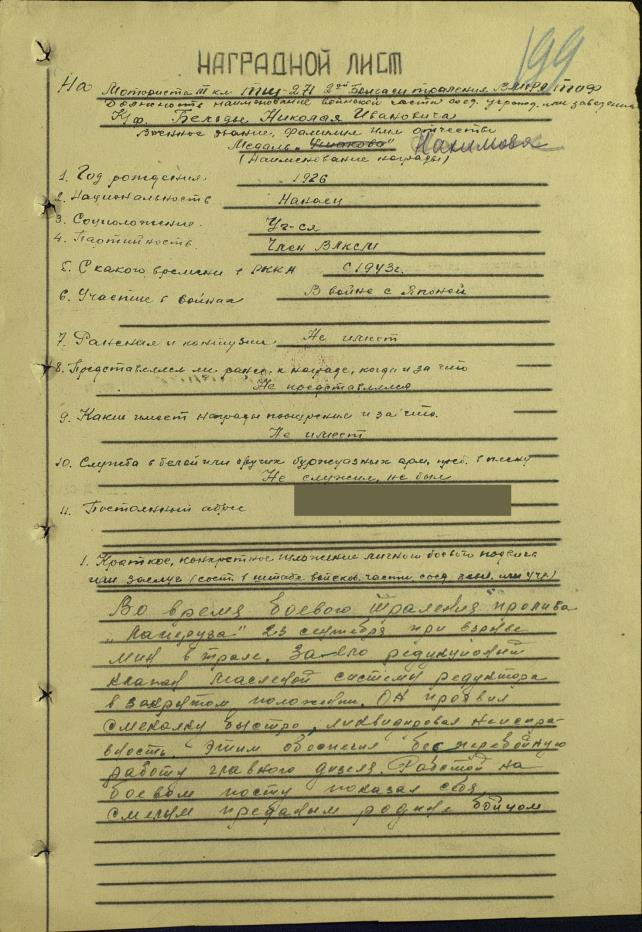 199
НАГРАДНОЙ ЛИСТ
На Моториста III кл ТЩ-271 2ой бригады траления ВМБ ТОФ
Должность наименование войсковой части соед. учрежд. или заведения
К/ф. Бельды Николая Ивановича
Военное звание, фамилия имя отчество
Медаль „Ушакова" Нахимова
(Наименование награды)
1. Год рождения 1926
2. Национальность Нанаец
3. Социоложение Уч-ся
4. Партийность Член ВЛКСМ
5. С какого времени в РККА С 1943г.
6. Участие в войнах В войне с Японей
7. Ранения и контузии Не имеет
8. Представлялся ли ранее к награде, когда и за что
Не представлялся
9. Какие имеет награды поощрения и за что.
Не имеет
10. Служба в белой или других буржуазных арм. преб. в плену
Не служил, не был
11. Постоянный адрес
1. Краткое, конкретное изложение личного боевого подвига
или заслуг (сост. в штабе войсков. части соед. или учр.)
Во время боевого траления пролива
„Лаперуза" 23 при взрыве
мин в трале. редукционный
клапан масленой системы редуктора
в закрытом положении. Он проявил
смекалку быстро, ликвидировал неиспра-
вность. Этим обеспечил бесперебойную
работу главного дизеля. Работой на
боевом посту показал себя
смелым преданым родине бойцом